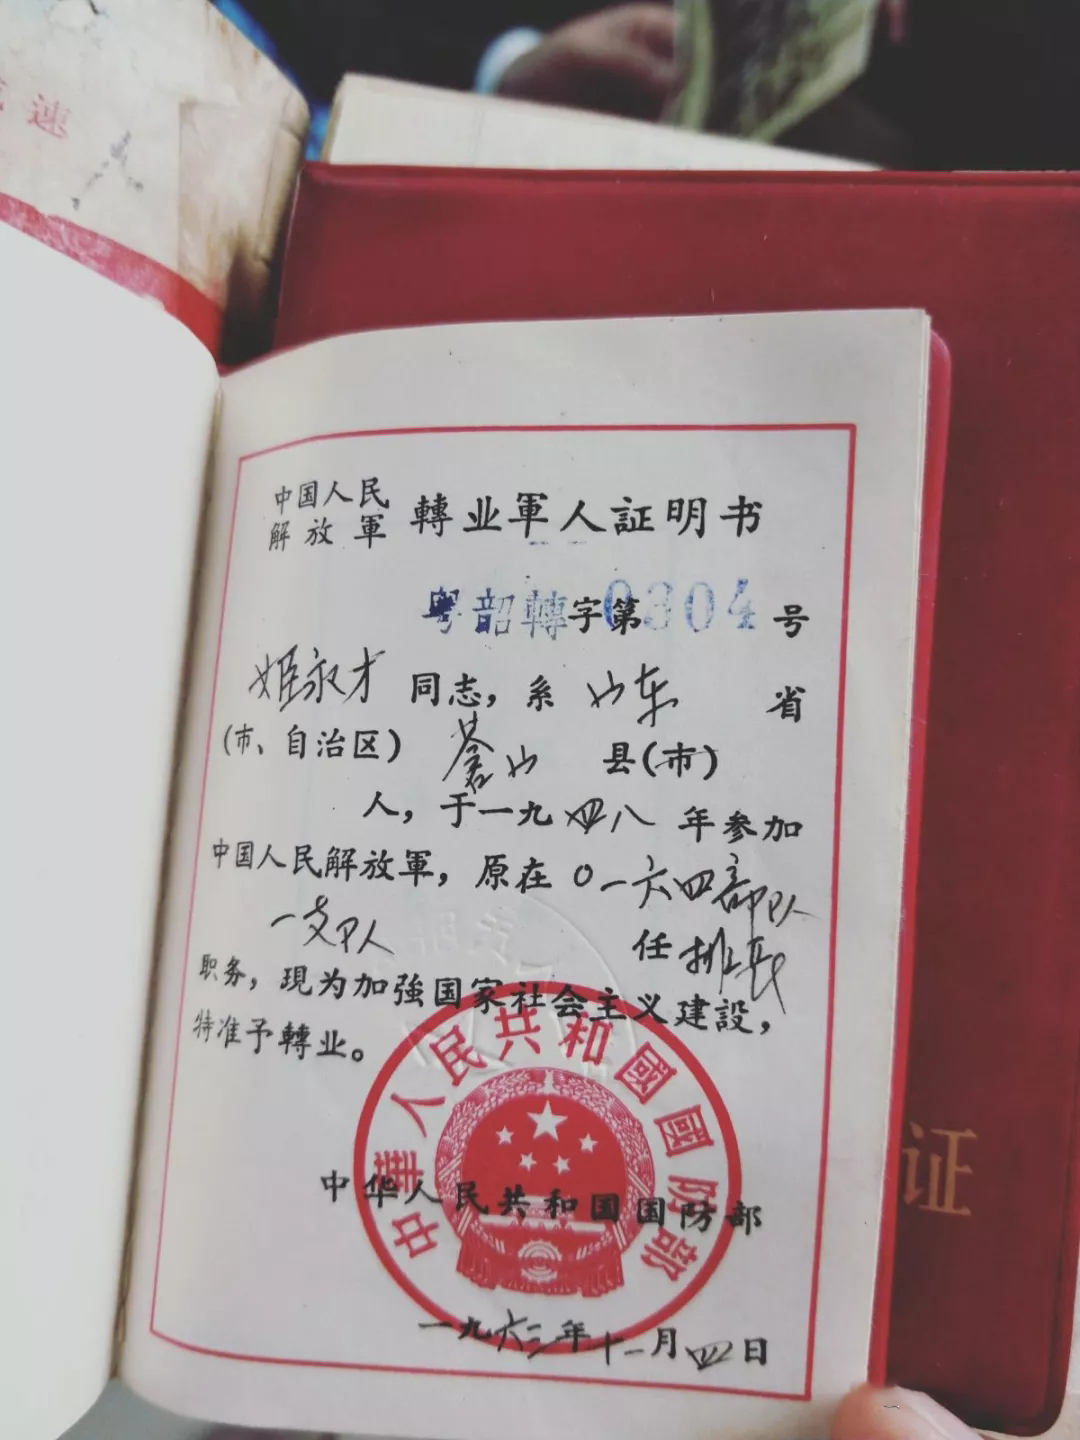 速
中国人民
解放軍
轉业軍人証明书
粤韶轉字第0304号
姬永才同志，系山东省
(市、自治区)蒼山县(市)
人，于一九四八年参加
中国人民解放軍，原在0一六四部队
一支队任排長
职务，現为加強国家社会主义建設，
特准予轉业。
中華人民共和國國防部
中华人民共和国国防部
一九六三年十二月四日
证